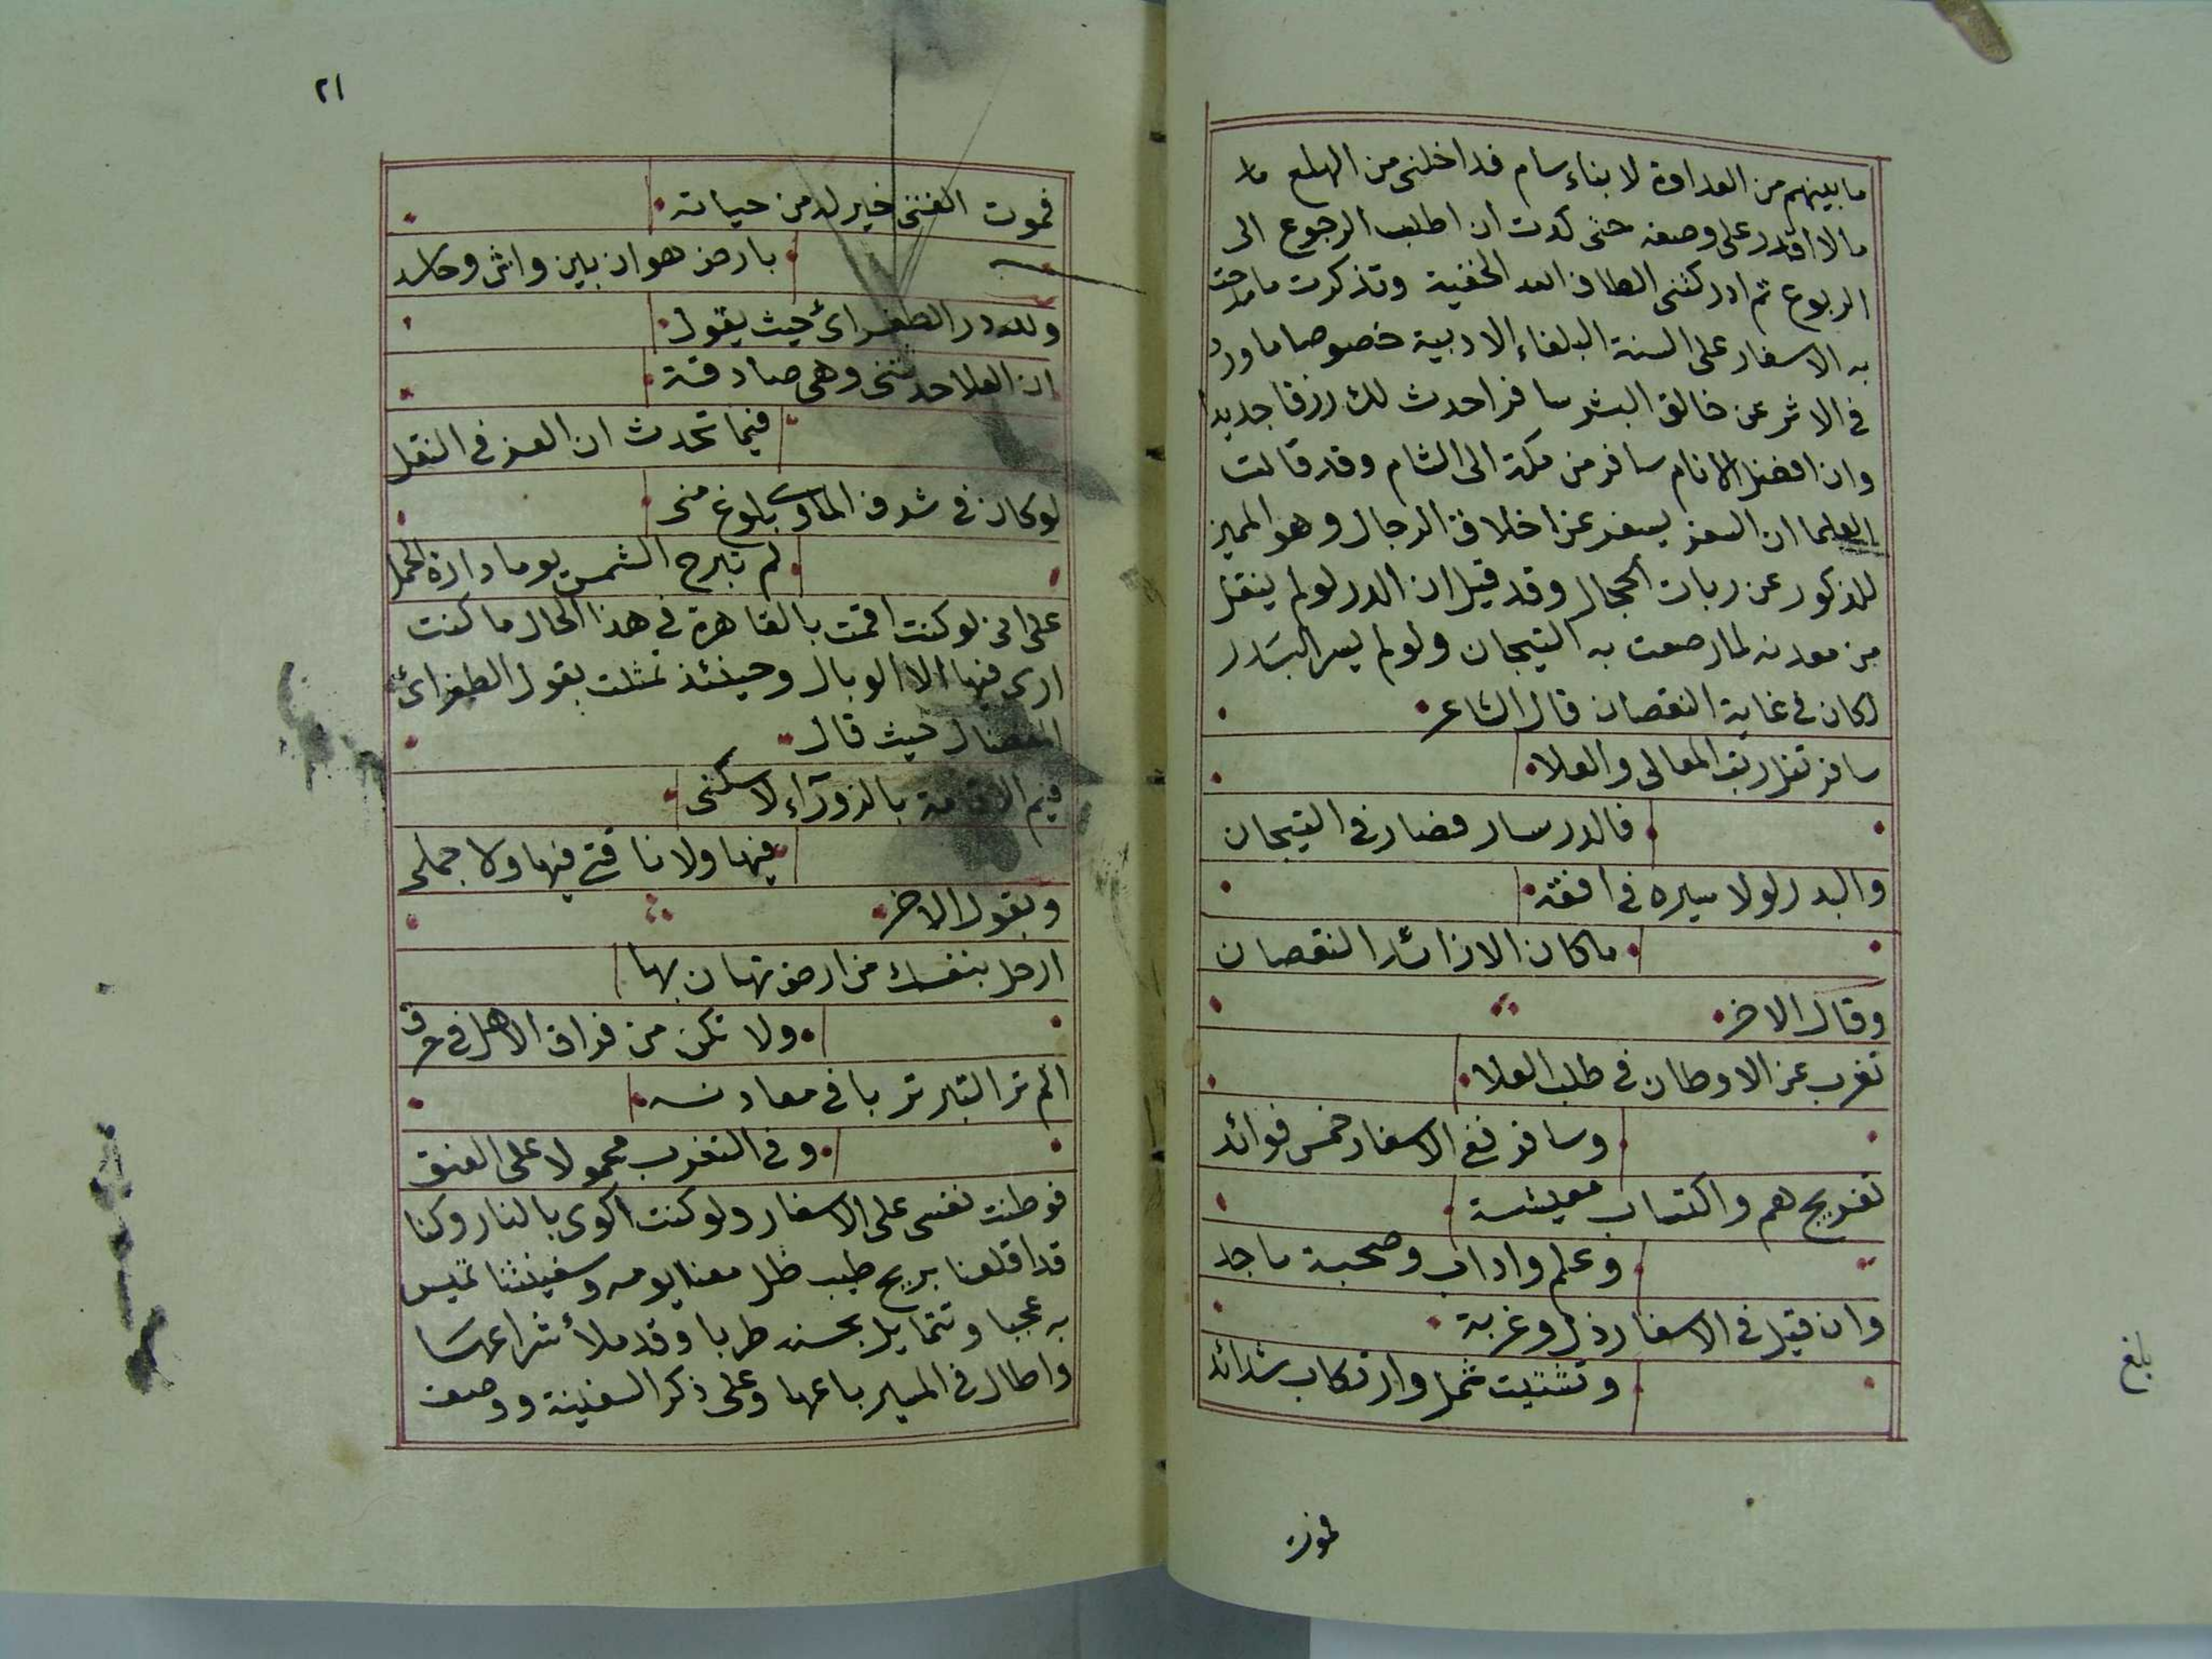 ما بينهم من العداوة لابناء سام فداخلنى من الهلع ما
مالا اقدر على وصفه حتى كدت ان اطلب الرجوع الى
الربوع ثم ادركتنى الطاف الله الخفية وتذكرت ما مدحت
به الاسفار على السنة البلغاء الادبية خصوصا ما ورد
فى الاثر عن خالق البشر سافر احدث لك رزقا جديدا
وان افضل الانام سافر من مكة الى الشام وقد قالت
العلما ان السفر يسفر عن اخلاق الرجال وهو المميز
للذكور عن ربات الحجال وقد قيل ان الدر لو لم ينقل
من معدنه لما رصعت به التيجان ولو لم يسر البدر
لكان فى غاية النقصان قال الشاعر
سافر تنل رتب المعالى والعلا
فالدر سار فصار فى التيجان
والبدر لولا سيره فى افقه
ما كان الا زائد النقصان
وقال الاخر
تغرب عن الاوطان فى طلب العلا
وسافر ففى الاسفار خمس فوائد
تفريج هم واكتساب معيشة
وعلم واداب وصحبة ماجد
وان قيل فى الاسفار ذل وغربة
وتشتيت شمل وارتكاب شدائد
بلغ
فموت
٢١
فموت الفتى خير له من حياته
بارض هوان بين واش وحاسد
ولله در الطغرائ حيث يقول
ان العلا حدثتنى وهى صادقة
فيما تحدث ان العز فى النقل
لو كان فى شرف الماوى بلوغ منى
لم تبرح الشمس يوما دارة الحمل
على انى لو كنت اقمت بالقاهرة فى هذا الحال ما كنت
ارى فيها الا الوبال وحينئذ تمثلت بقول الطغرائ
حيث قال
فيم الاقامة بالزورآء لا سكنى
فيها ولا ناقتى فيها ولا جملى
وبقول الاخر
ارحل بنفسك من ارض تهان بها
ولا تكن من فراق الاهل فى حرق
الم تر التبر تربا فى معادنه
وفى التغرب محمولا على العنق
فوطنت نفسى على الاسفار ولو كنت اكوى بالنار وكنا
قد اقلعنا بريح طيب ظل معنا يومه وسفينتنا تميس
به عجبا وتتمايل بحسنه طربا وقد ملأ شراعها
واطال فى المسير باعها وعلى ذكر السفينة ووصف